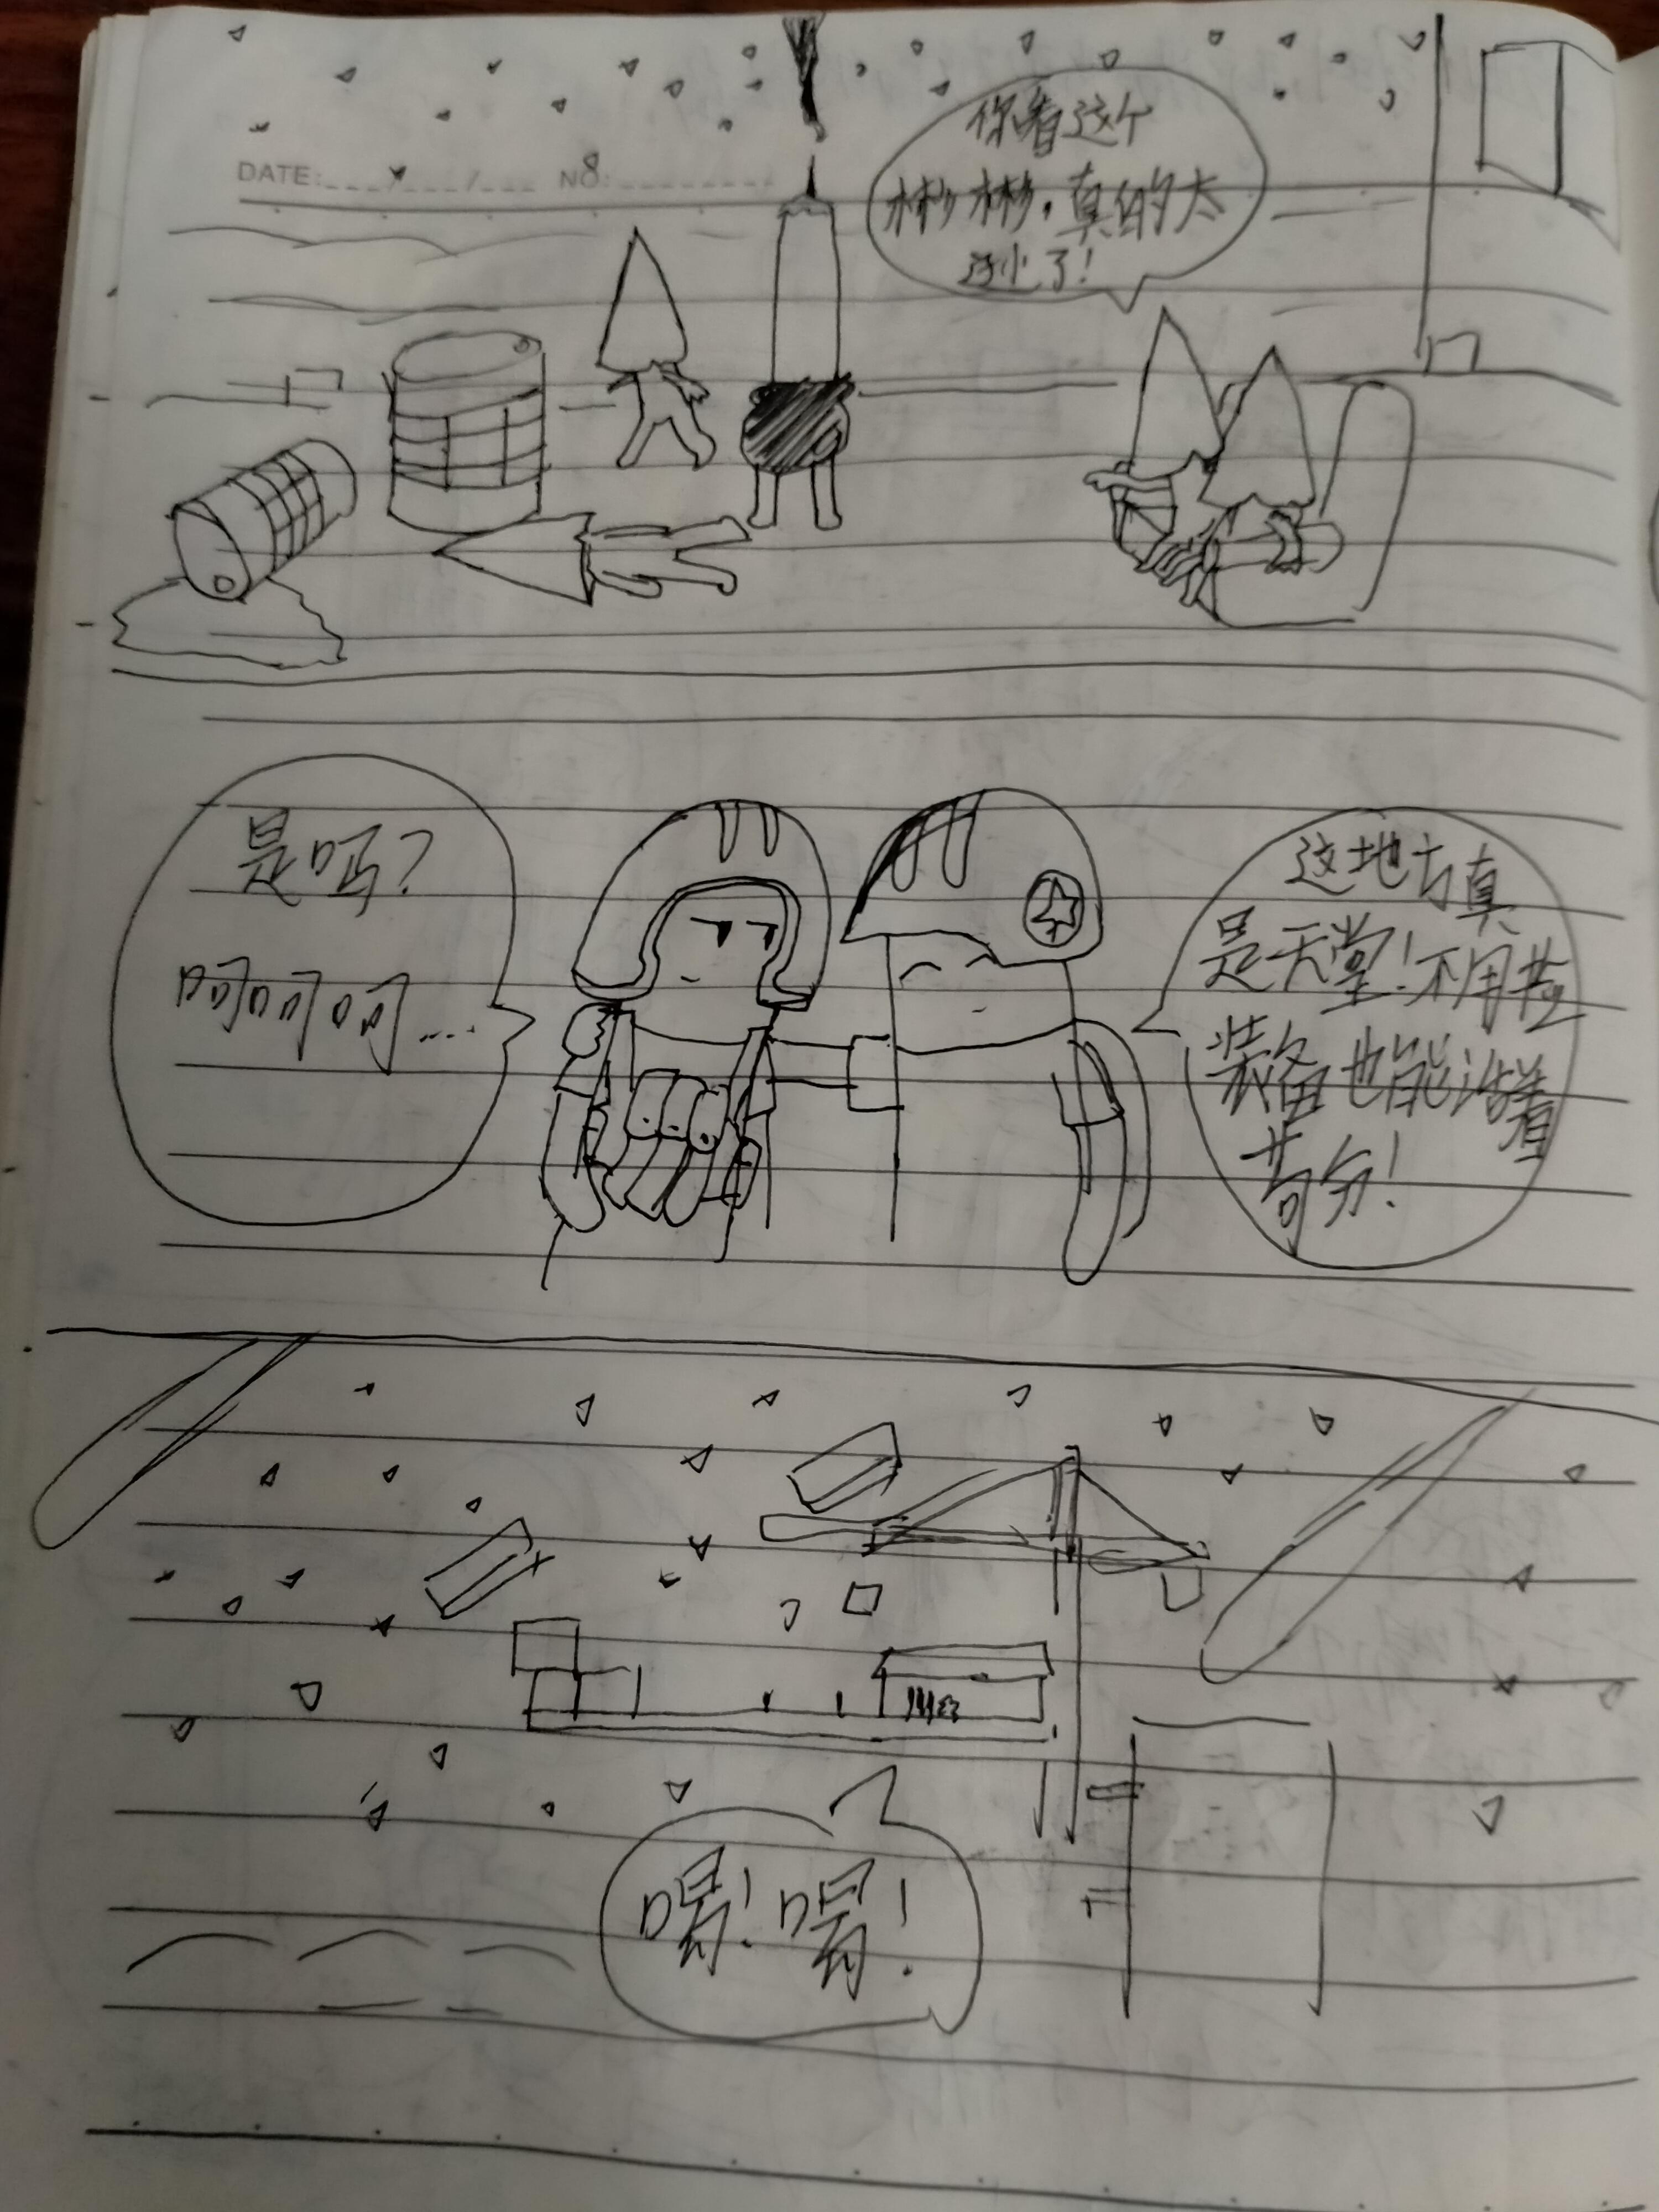 DATE: / / NO: 8
你看这个
彬彬，真的太
逊了！
是吗？
呵呵呵…
这地方真
是天堂！不用花
装备也能活着
苟分！
喝！喝！